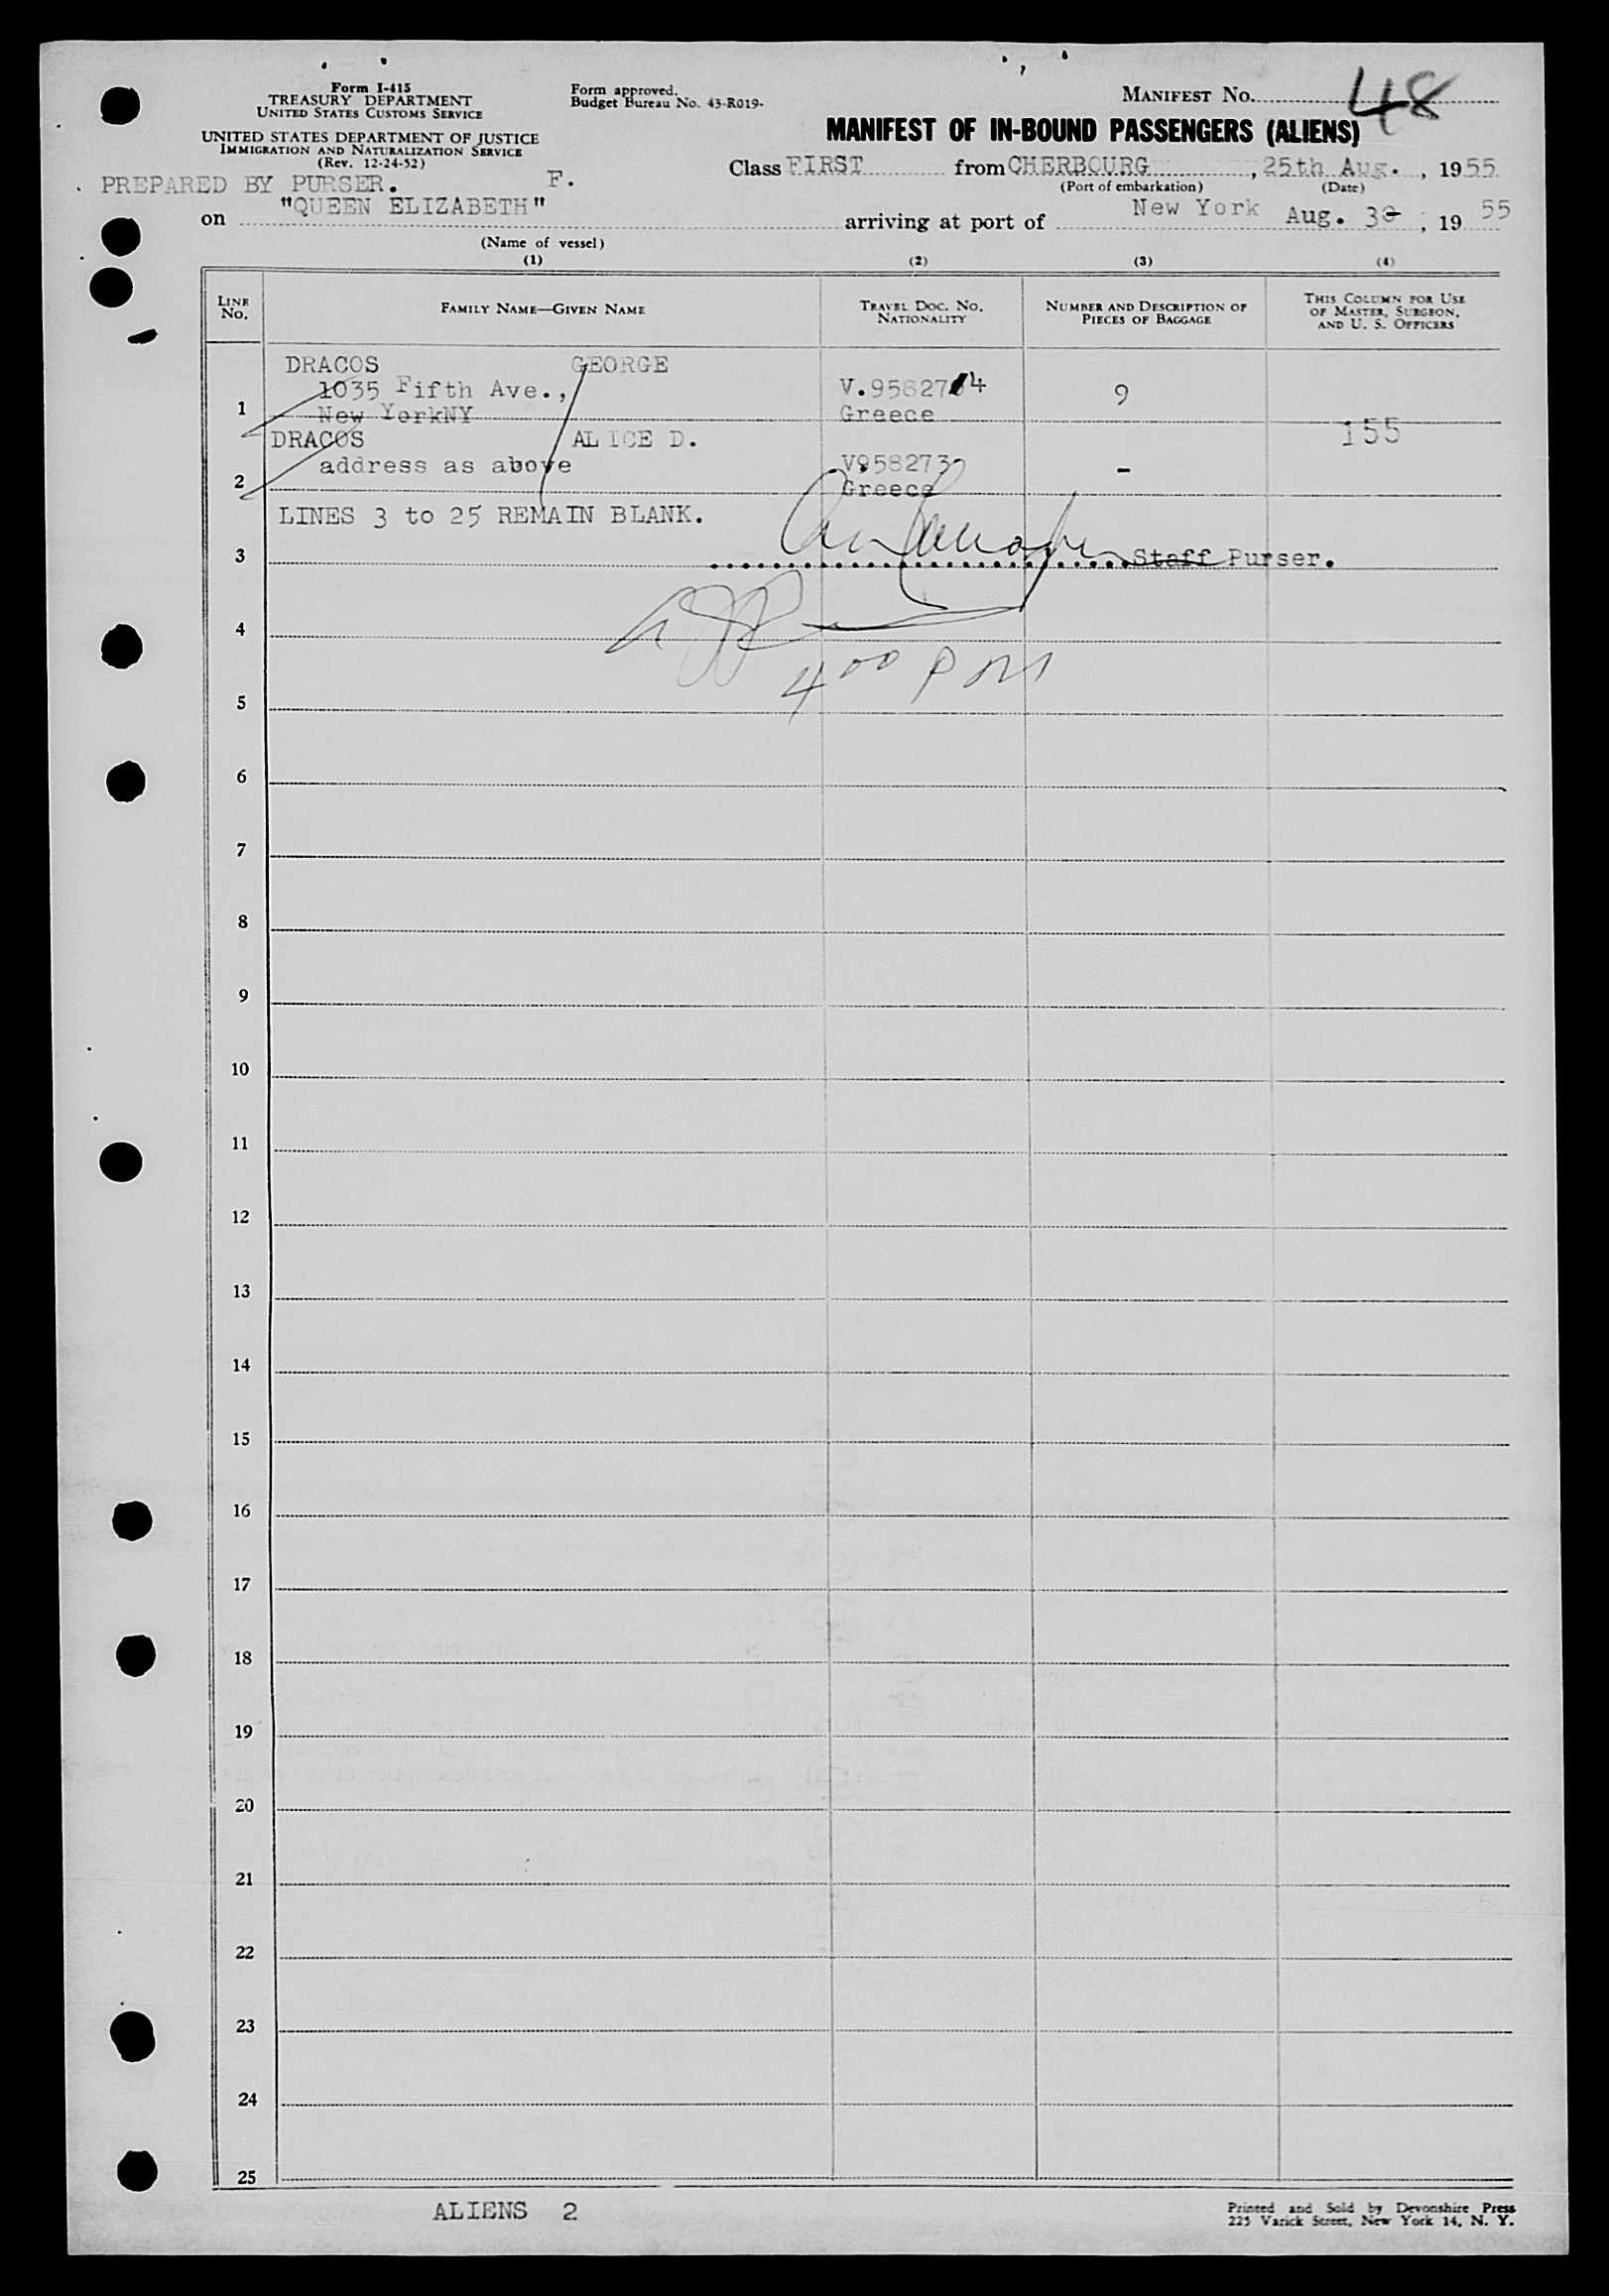 Form I-415
TREASURY DEPARTMENT
UNITED STATES CUSTOMS SERVICE
UNITED STATES DEPARTMENT OF JUSTICE
IMMIGRATION AND NATURALIZATION SERVICE
(Rev. 12-24-52)
Form approved.
Budget Bureau No. 43-R019-
MANIFEST NO. 48
MANIFEST OF IN-BOUND PASSENGERS (ALIENS)
Class FIRST from CHERBOURG, 25th Aug., 1955
(Port of embarkation) (Date)
PREPARED BY PURSER. F.
on "QUEEN ELIZABETH" arriving at port of New York Aug. 30, 1955
(Name of vessel)
(1) (2) (3) (4)
LINE NO. FAMILY NAME—GIVEN NAME TRAVEL DOC. NO. NATIONALITY NUMBER AND DESCRIPTION OF PIECES OF BAGGAGE THIS COLUMN FOR USE OF MASTER, SURGEON, AND U. S. OFFICERS
DRACOS GEORGE
1035 Fifth Ave., V.958274 9
1 New YorkNY Greece
DRACOS ALICE D. 155
address as above V958273 -
2 Greece
LINES 3 to 25 REMAIN BLANK.
3 Staff Purser.
4
400 PM
5
6
7
8
9
10
11
12
13
14
15
16
17
18
19
20
21
22
23
24
25
ALIENS 2
Printed and Sold by Devonshire Press
225 Varick Street, New York 14, N. Y.